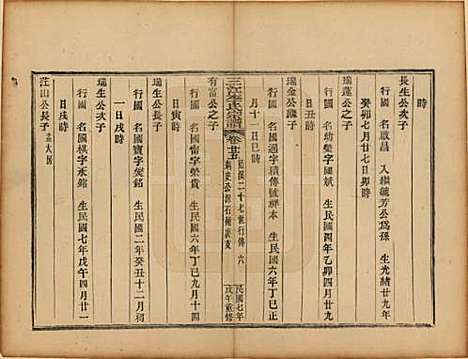 時
長生公次子
行國 名啟昌 入繼毓芳公爲孫 生光緒廿九年
癸卯七月廿七日卯時
瑞蓮公之子
行國 名幼 字振斌 生民國四年乙卯四月廿九
瑞金公海子
行國 名國通字積傳號祥本 生民國六年丁巳正
月十一日巳時
三江李氏宗譜
卷廿五
藍谿二十七世行傳 六
民國七年
戊午重修
有富公之子
行國 名國甯字榮貴 生民國六年丁巳九月十四
日寅時
瑞生公次子
行國 名國寶字愛銘 生民國二年癸丑十二月初
一日戌時
瑞生公三子
行國 名國棋字承銘 生民國七年戊午四月廿二
日戌時
荘山公長子
大房